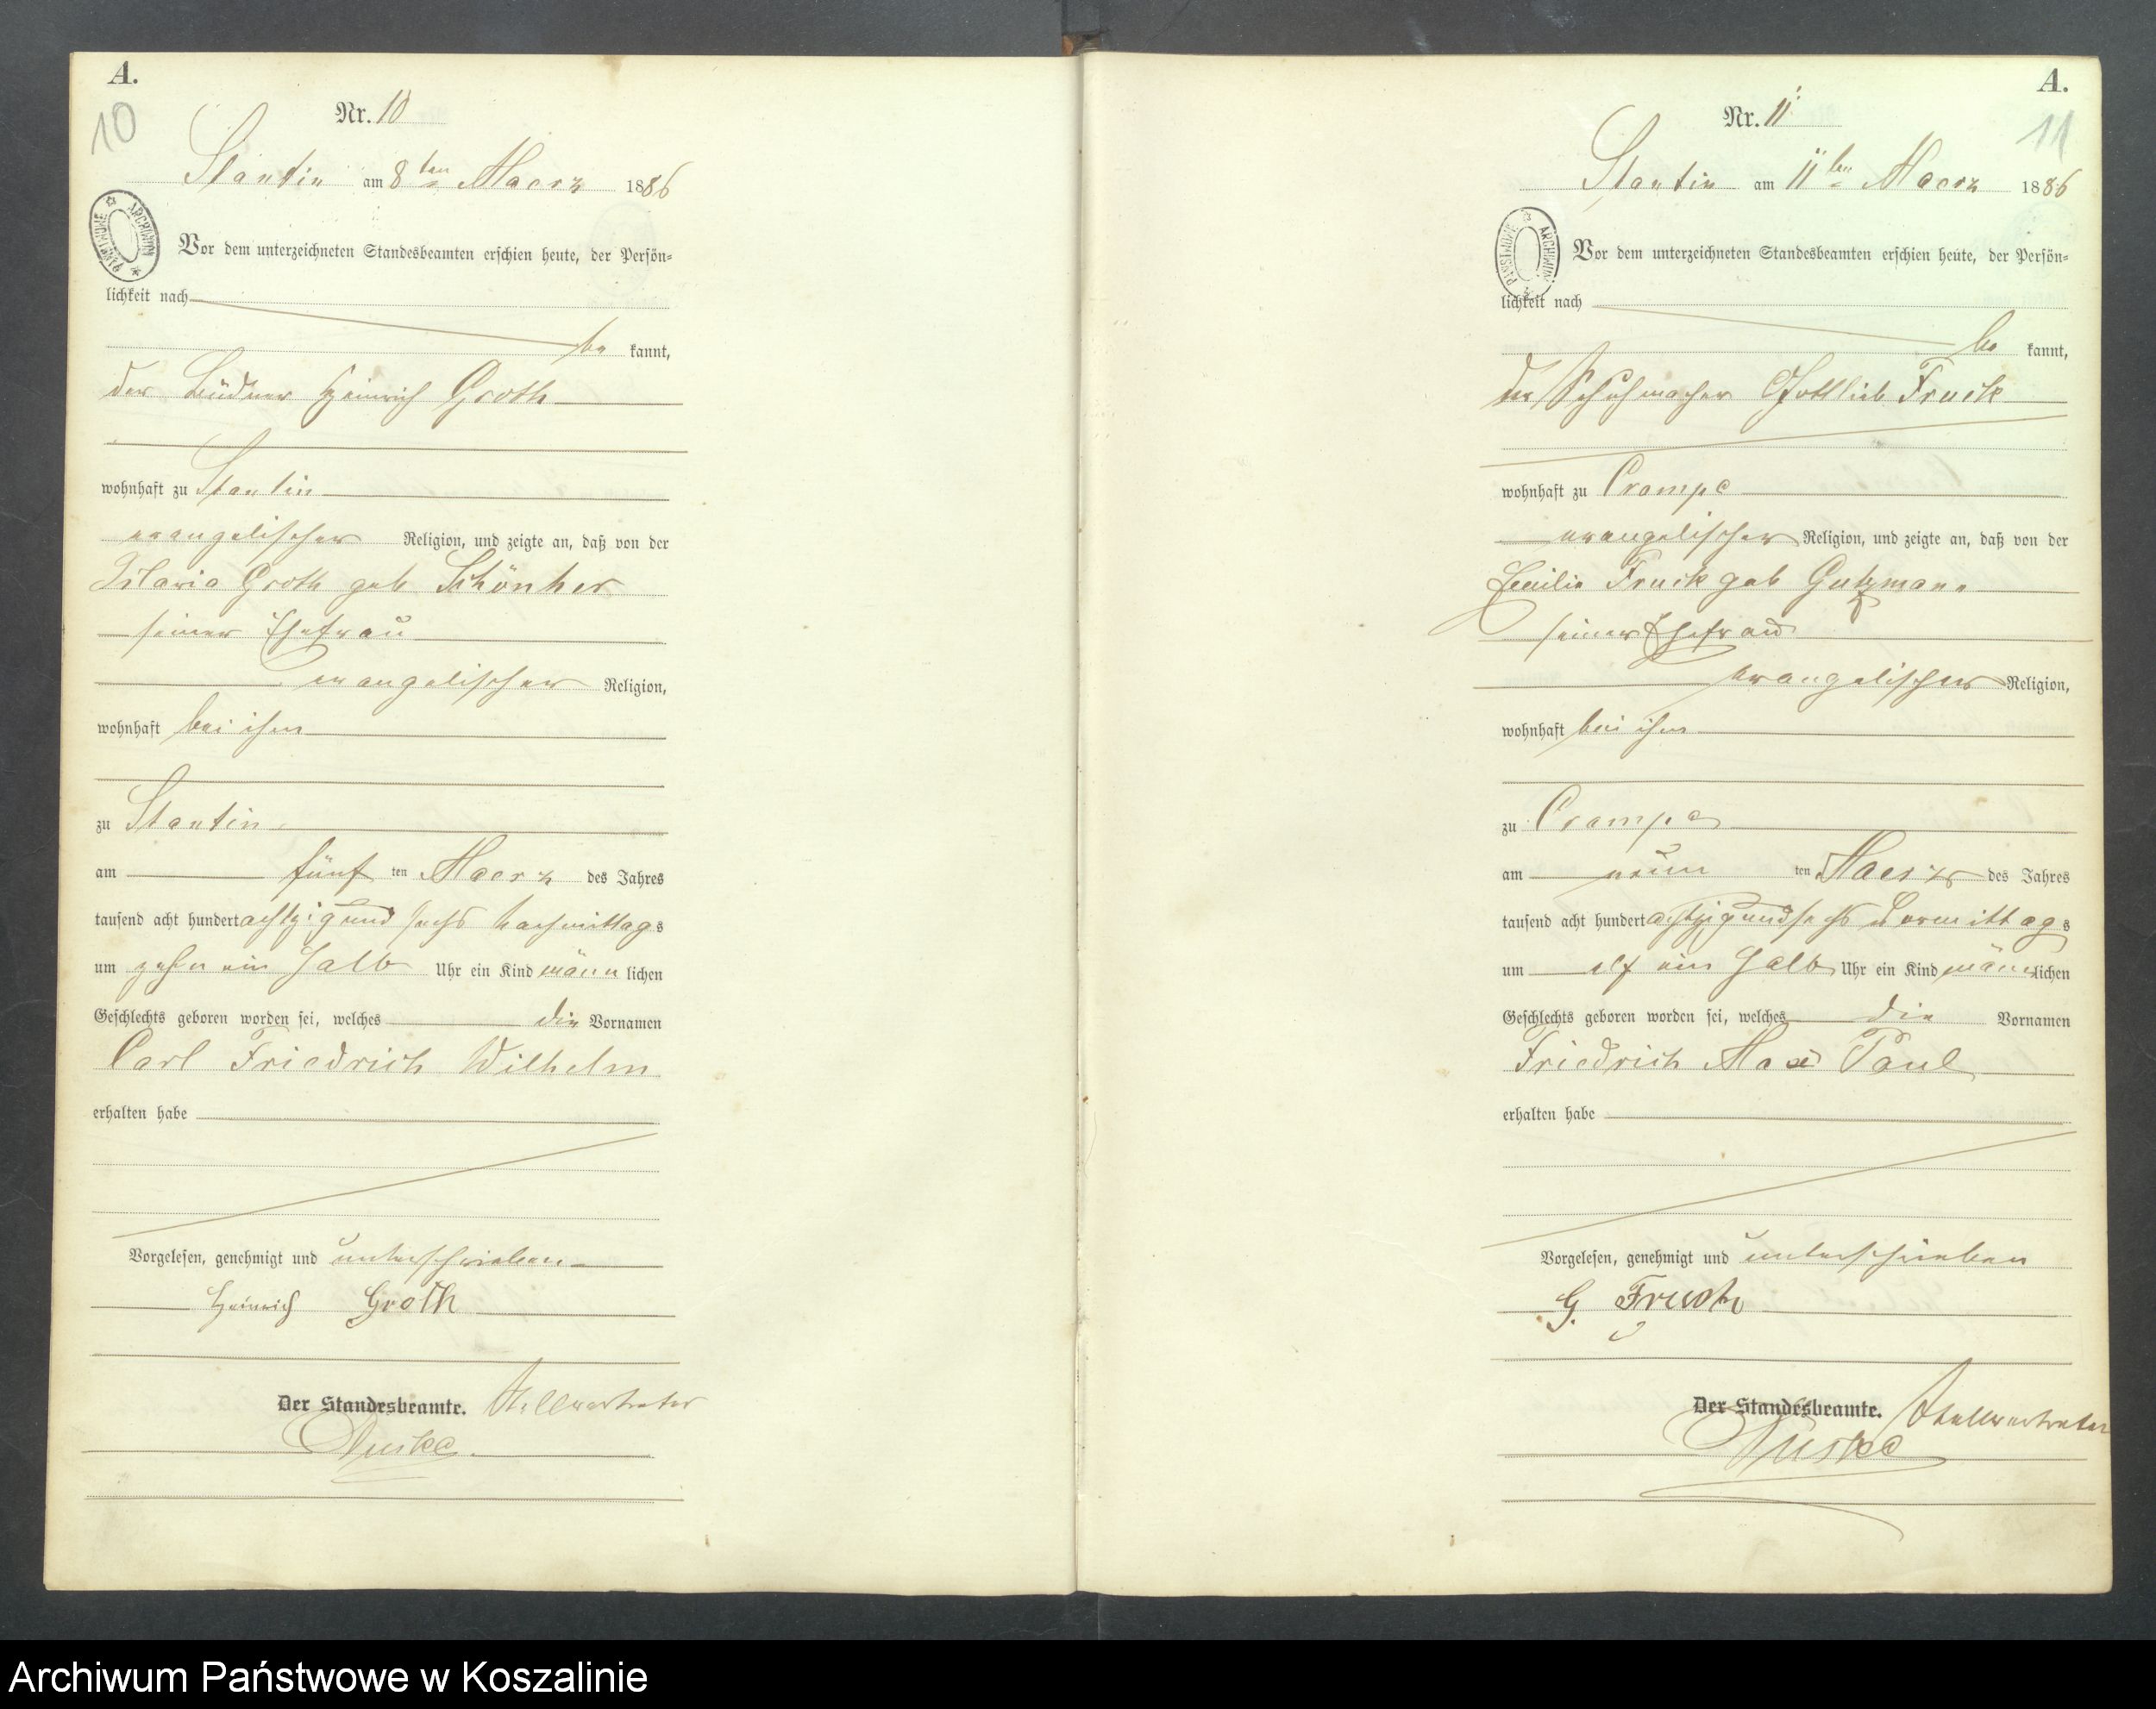 A.
10
Nr. 10
Stantin am 8ten Maerz 1886
Vor dem unterzeichneten Standesbeamten erschien heute, der Persön-
lichkeit nach
be kannt,
der Büdner Heinrich Groth
wohnhaft zu Stantin
evangelischer Religion, und zeigte an, daß von der
Maria Groth geb Schönher
seiner Ehefrau
evangelischer Religion,
wohnhaft bei ihm
zu Stantin
am fünf ten Maerz des Jahres
tausend acht hundert achtzig und sechs Nachmittags
um zehn ein halb Uhr ein Kind männ lichen
Geschlechts geboren worden sei, welches die Vornamen
Carl Friedrich Wilhelm
erhalten habe
Vorgelesen, genehmigt und unterschrieben
Heinrich Groth
Der Standesbeamte. Stellvertreter
ARCHIWUM PAŃSTWOWE
A.
11
Nr. 11
Stantin am 11ten Maerz 1886
Vor dem unterzeichneten Standesbeamten erschien heute, der Persön-
lichkeit nach
be kannt,
der Schuhmacher Gottlieb Fruck
wohnhaft zu Crampe
evangelischer Religion, und zeigte an, daß von der
Emilie Fruck geb Gutzmann
seiner Ehefrau
evangelischer Religion,
wohnhaft bei ihm
zu Crampe
am neun ten Maerz des Jahres
tausend acht hundert achtzig und sechs Vormittags
um elf ein halb Uhr ein Kind männlichen
Geschlechts geboren worden sei, welches die Vornamen
Friedrich Max Paul
erhalten habe
Vorgelesen, genehmigt und unterschrieben
G. Fruck
Der Standesbeamte. Stellvertreter
ARCHIWUM PAŃSTWOWE
Archiwum Państwowe w Koszalinie